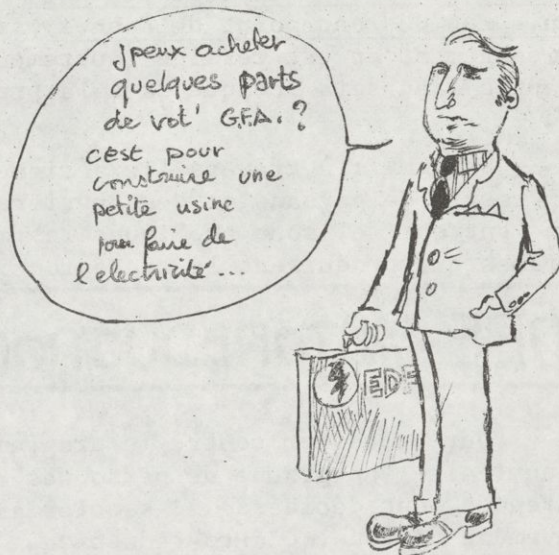 jpeux acheter
quelques parts
de vot' G.F.A. ?
c'est pour
construire une
petite usine
pour faire de
l'electricité...
EDF